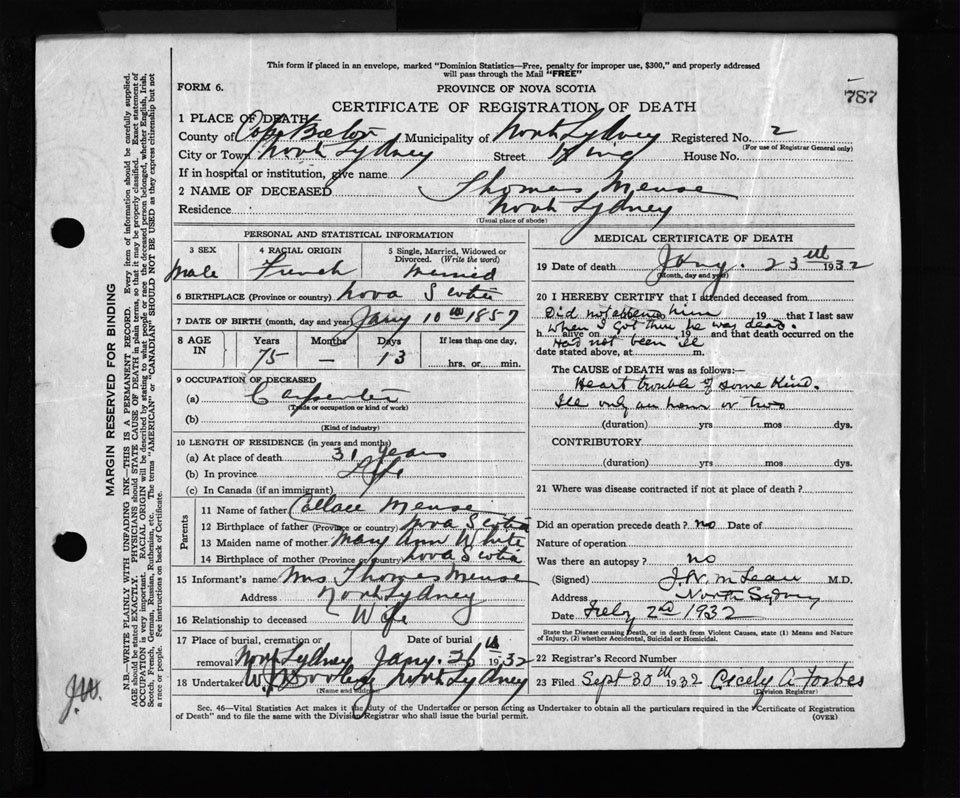 This form if placed in an envelope, marked "Dominion Statistics—Free, penalty for improper use, $300," and properly addressed
will pass through the Mail "FREE"
FORM 6.
PROVINCE OF NOVA SCOTIA
787
CERTIFICATE OF REGISTRATION OF DEATH
1 PLACE OF DEATH
County of Cape Breton Municipality of North Sydney Registered No. 2
(For use of Registrar General only)
City or Town North Sydney Street King House No.
If in hospital or institution, give name
2 NAME OF DECEASED Thomas Meuse
Residence North Sydney
(Usual place of abode)
PERSONAL AND STATISTICAL INFORMATION
3 SEX 4 RACIAL ORIGIN 5 Single, Married, Widowed or
Divorced. (Write the word)
Male French Married
6 BIRTHPLACE (Province or country) Nova Scotia
7 DATE OF BIRTH (month, day and year) Jany 10th 1857
8 AGE IN Years Months Days If less than one day,
75 — 13 hrs. or min.
9 OCCUPATION OF DECEASED
(a) Carpenter
(Trade or occupation or kind of work)
(b)
(Kind of industry)
10 LENGTH OF RESIDENCE (in years and months)
(a) At place of death 31 years
(b) In province Life
(c) In Canada (if an immigrant)
Parents
11 Name of father Meuse
12 Birthplace of father (Province or country) Nova Scotia
13 Maiden name of mother Mary Ann White
14 Birthplace of mother (Province or country) Nova Scotia
15 Informant's name Mrs. Thomas Meuse
Address North Sydney
16 Relationship to deceased Wife
17 Place of burial, cremation or Date of burial
removal North Sydney Jany. 26th 1932
18 Undertaker North Sydney
(Name and address)
MEDICAL CERTIFICATE OF DEATH
19 Date of death Jany. 23rd 1932
(Month, day and year)
20 I HEREBY CERTIFY that I attended deceased from
Did not attend him 19 that I last saw
When I got there he was dead.
h alive on 19 and that death occurred on the
Had not been ill
date stated above, at m.
The CAUSE of DEATH was as follows:—
Heart trouble of some kind.
Ill only an hour or two
(duration) yrs mos dys.
CONTRIBUTORY
(duration) yrs. mos. dys.
21 Where was disease contracted if not at place of death?
Did an operation precede death? no Date of
Nature of operation
Was there an autopsy? no
(Signed) J.W. McLean M.D.
Address North Sydney
Date Feby 2nd 1932
State the Disease causing Death, or in death from Violent Causes, state (1) Means and Nature
of Injury, (2) whether Accidental, Suicidal or Homicidal.
22 Registrar's Record Number
23 Filed Sept 30th 1932 Cicely A Forbes
(Division Registrar)
Sec. 46—Vital Statistics Act makes it duty of the Undertaker or person acting as Undertaker to obtain all the particulars required in the "Certificate of Registration
of Death" and to file the same with the Division Registrar who shall issue the burial permit. (OVER)
MARGIN RESERVED FOR BINDING
N.B.—WRITE PLAINLY WITH UNFADING INK—THIS IS A PERMANENT RECORD. Every item of information should be carefully supplied.
AGE should be stated EXACTLY. PHYSICIANS should STATE CAUSE OF DEATH in plain terms, so that it may be properly classified. Exact statement of
OCCUPATION is very important. RACIAL ORIGIN will be described by stating to what people or race the deceased person belonged, whether English, Irish,
Scotch, French, German, Russian, Ruthenian, etc. The terms "AMERICAN" or "CANADIAN" SHOULD NOT BE USED as they express citizenship but not
a race or people. See instructions on back of Certificate.